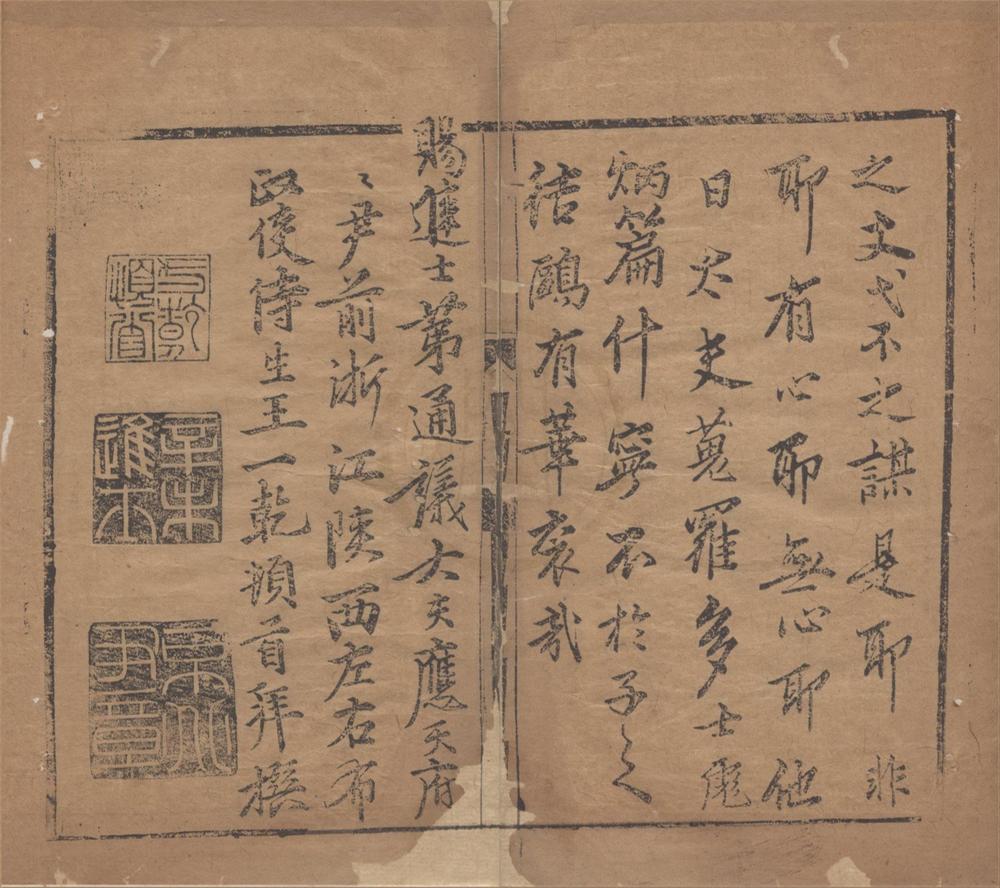 之文弋不之謀是耶非
耶有心耶無心耶他
日太史蒐羅多士彪
炳篇什寧不於子之
結鷗有華袞哉
賜進士第通議大夫應天府
尹前浙江陝西左右布
政使侍生王一乾頓首拜撰